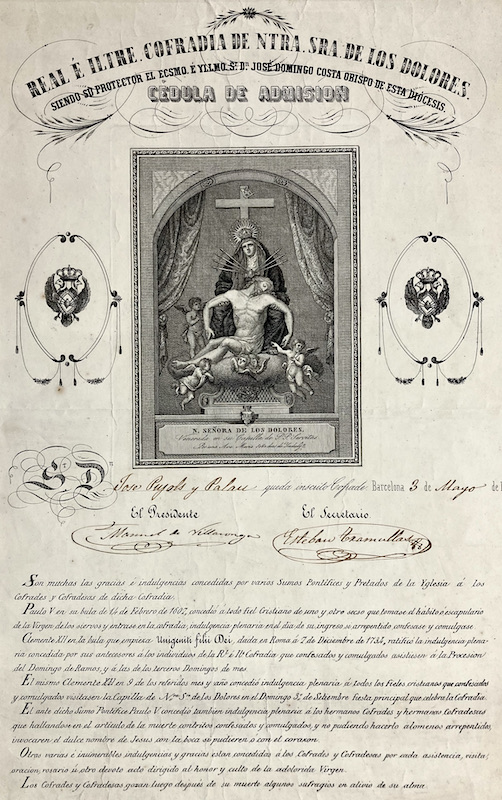 REAL É ILTRE. COFRADIA DE NTRA. SRA. DE LOS DOLORES.
SIENDO SU PROTECTOR EL ECSMO. É YLLMO. Sr. Dn. JOSÉ DOMINGO COSTA OBISPO DE ESTA DIÓCESIS.
CÉDULA DE ADMISION
N. SEÑORA DE LOS DOLORES.
Venerada en su Capilla de P.P. Servitas
Sr. D. Jose Pujols y Palau queda inscrito Cofrade Barcelona 3 de Mayo de
El Presidente El Secretario
Manuel de Villaronga Esteban Tramullas
Son muchas las gracias é indulgencias concedidas por varios Sumos Pontífices y Prelados de la Yglesia á los
Cofrades y Cofradesas de dicha Cofradia.
Paulo V en su bula de 14 de Febrero de 1607, concedió a todo fiel Cristiano de uno y otro secso que tomase el hábito ó escapulario
de la Virgen de los siervos y entrase en la cofradia, indulgencia plenaria en el dia de su ingreso si arrepentido confesase y comulgase.
Clemente XII en la bula que empieza Unigeniti filii Dei, dada en Roma á 7 de Diciembre de 1734, ratificó la indulgencia plena-
ria concedida por sus antecesores á los individuos de la Rl. é Ile. Cofradia que confesados y comulgados asistiesen á la Procesion
del Domingo de Ramos, y á las de los terceros Domingos de mes.
El mismo Clemente XII en 9 de los referidos mes y año concedió indulgencia plenaria á todos los fieles cristianos que confesados
y comulgados visitasen la Capilla de Ntra. Sra. de los Dolores en el Domingo 3º. de Setiembre fiesta principal que celebra la Cofradia.
El ante dicho Sumo Pontífice Paulo V concedió tambien indulgencia plenaria á los hermanos Cofrades y hermanas Cofradesas
que hallandose en el artículo de la muerte contritos confesados y comulgados, y no pudiendo hacerlo alomenos arrepentidos,
invocaren el dulce nombre de Jesus con la boca si pudieren ó con el corazon.
Otras varias é inumerables indulgencias y gracias estan concedidas á los Cofrades y Cofradesas por cada asistencia, visita,
oracion, rosario ú otro devoto acto dirigido al honor y culto de la adolorida Virgen.
Los Cofrades y Cofradesas gozan luego despues de su muerte algunos sufragios en alivio de su alma.